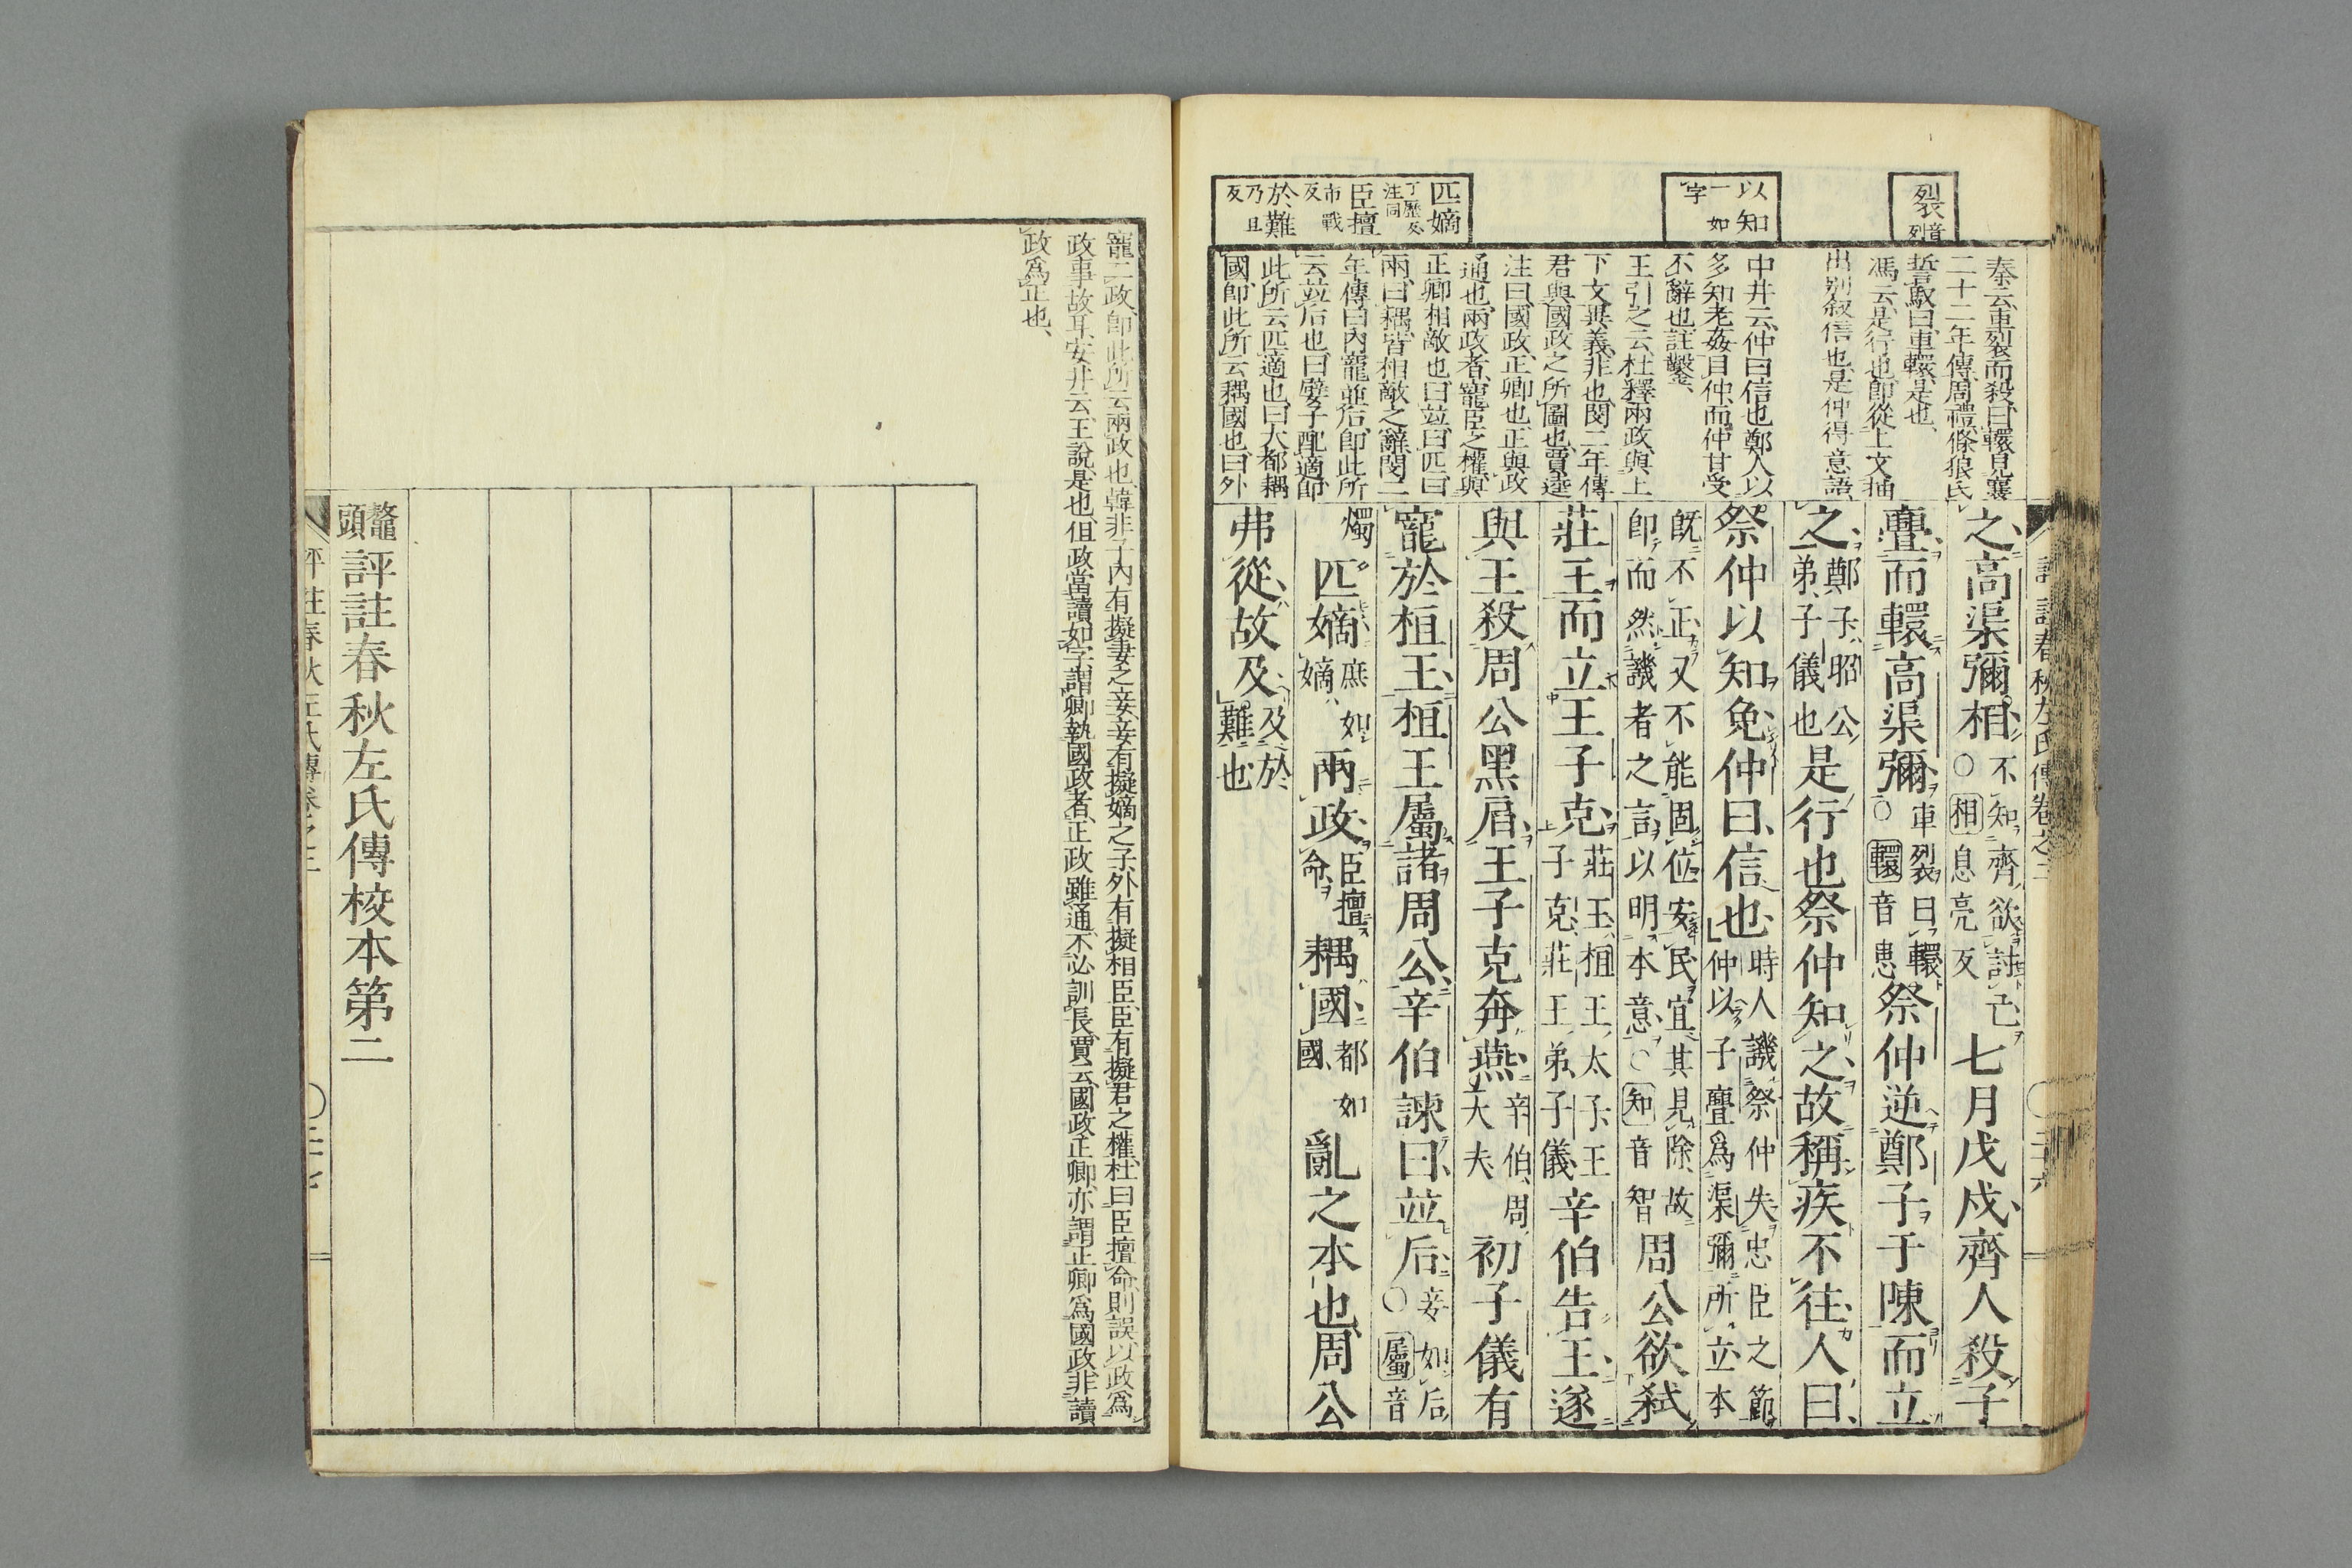 裂音列
以知一如字
匹嫡丁歷反注同
臣擅市戰反
於難乃旦反
秦云車裂而殺曰轘見襄
二十二年傳周禮條狼氏
誓馭曰車轘是也
馮云是行也即從上文抽
出別敍信也是仲得意語
中井云仲曰信也鄭人以
多知老姦目仲而仲甘受
不辭也註鑿
王引之云杜釋兩政與上
下文異義非也閔二年傳
君與國政之所圖也賈逵
注曰國政正卿也正與政
通也兩政者寵臣之權與
正卿相敵也曰竝曰匹曰
兩曰耦皆相敵之辭閔二
年傳曰內寵並后即此所
云竝后也曰嬖子配適即
此所云匹適也曰大都耦
國即此所云耦國也曰外
評註春秋左氏傳卷之二
二十六
之高渠彌相不知齊欲討亡○相息亮反七月戊戌齊人殺子
亹而轘高渠彌車裂曰轘○轘音患祭仲逆鄭子于陳而立
之鄭子昭公弟子儀也是行也祭仲知之故稱疾不往人曰
祭仲以知免仲曰信也時人譏祭仲失忠臣之節仲以子亹爲渠彌所立本
既不正又不能固位安民宜其見除故即而然譏者之言以明本意○知音智周公欲弒
莊王而立王子克莊王桓王太子王子克莊王弟子儀辛伯告王遂
與王殺周公黑肩王子克奔燕辛伯周大夫初子儀有
寵於桓王桓王屬諸周公辛伯諫曰竝后妾如后○屬音
燭匹嫡庶如嫡兩政臣擅命耦國都如國亂之本也周公
弗從故及及於難也
寵二政即此所云兩政也韓非子內有擬妻之妾妾有擬嫡之子外有擬相臣臣有擬君之權杜曰臣擅命則誤以政爲
政事故耳安井云王說是也但政當讀如字謂卿執國政者正政雖通不必訓長賈云國政正卿亦謂正卿爲國政非讀
政爲正也
鼇頭評註春秋左氏傳校本第二
評註春秋左氏傳卷之二
二十七